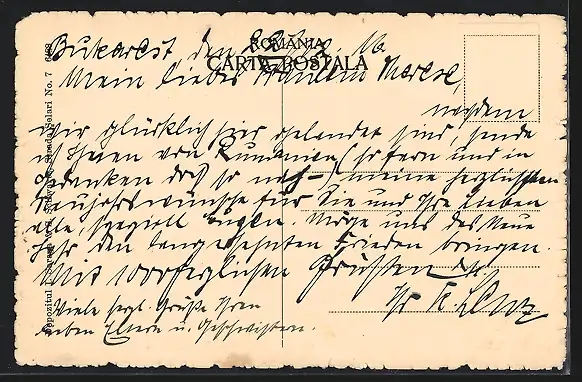 ROMÂNIA
CARTA POSTALA
Bukarest den 16
Mein liebes Fräulein
nachdem
wir glücklich hier gelandet sind, sende
ich Ihnen von Rumänien (so fern und in
Gedanken doch so nah-) meine herzlichsten
Neujahrswünsche für Sie und Ihre Lieben
alle, speziell Möge uns das Neue
Jahr den langersehnten Frieden bringen.
Mit 1000 herzlichen Grüßen
Ihr K. Lenz
Viele herzl. Grüße Ihren
lieben Eltern u. Geschwistern.